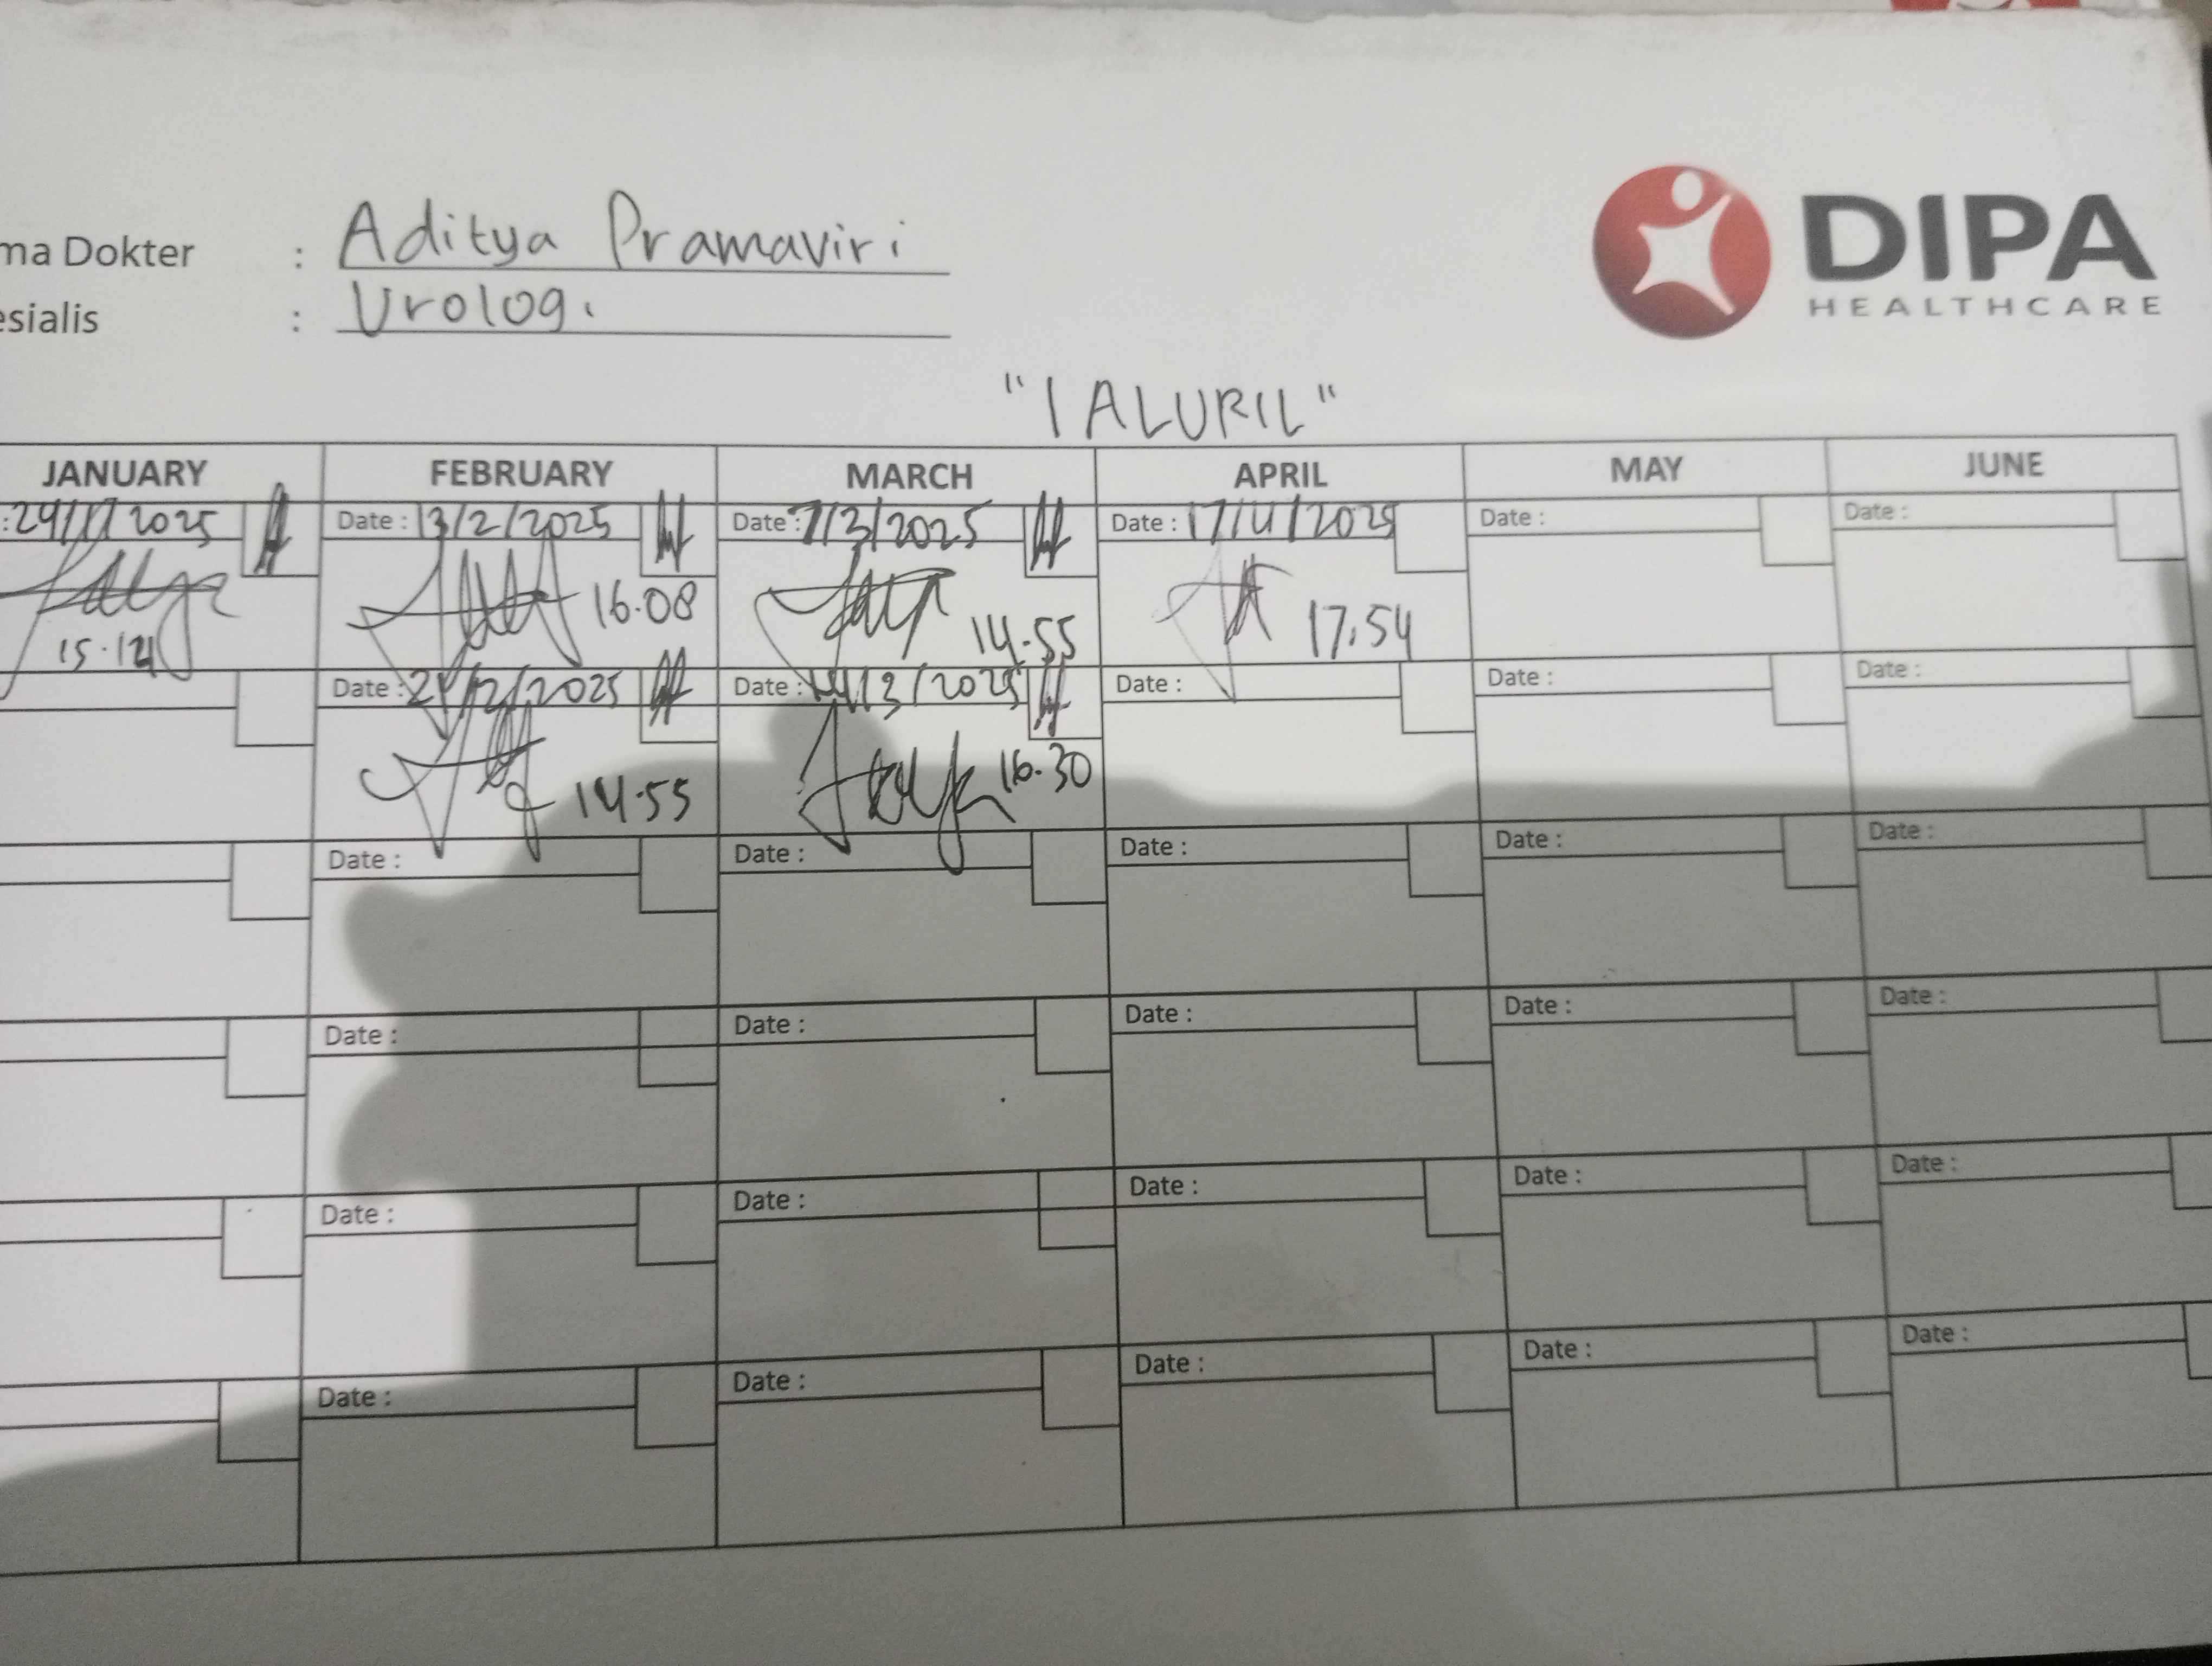 ma Dokter : Aditya Pramaviri
esialis : Urologi
DIPA
HEALTHCARE
"IALURIL"
JANUARY FEBRUARY MARCH APRIL MAY JUNE
: 24/1/2025 Date : 13/2/2025 Date : 7/3/2025 Date : 17/4/2025 Date : Date :
15.12 16.08 14.55 17.54
Date : 24/2/2025 Date : 14/3/2025 Date : Date : Date :
14.55 16.30
Date : Date : Date : Date : Date :
Date : Date : Date : Date : Date :
Date : Date : Date : Date : Date :
Date : Date : Date : Date : Date :